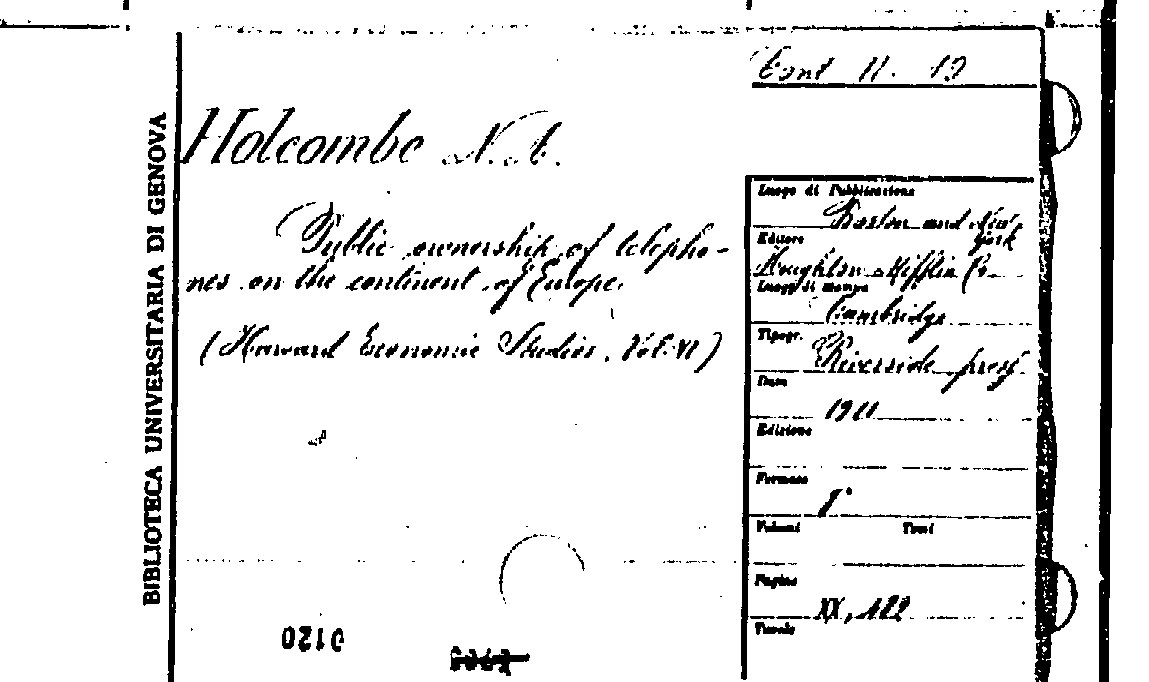 BIBLIOTECA UNIVERSITARIA DI GENOVA
Cont II. 19
Holcombe N. A.
Public ownership of telepho-
nes on the continent of Europe.
(Harward Economic Studies, Vol. VI)
Luogo di Pubblicazione
Boston and New-
York
Editore
Houghton Mifflin Co.
Luogo di stampa
Cambridge
Tipogr.
Riverside press
Data
1911
Edizione
Formato
8°
Volumi Tomi
Pagine
XX, 482
Tavole
0120